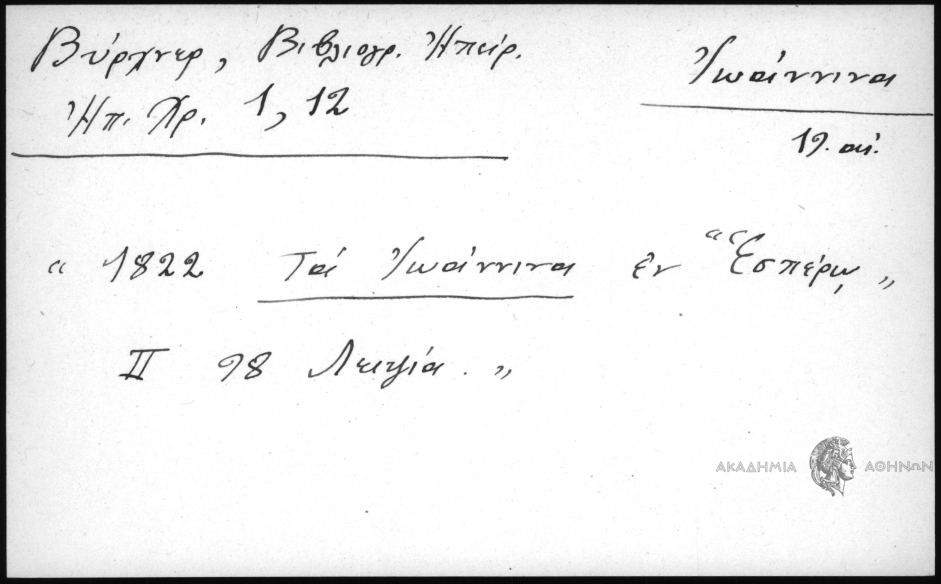 Βύργνερ, Βιβλιογρ. Ἠπείρ.
Ἠπ. Χρ. 1, 12
Ἰωάννινα
19. αἰ.
“ 1822 Τά Ἰωάννινα ἐν “Ἑσπέρῳ„
II 98 Λειψία. „
ΑΚΑΔΗΜΙΑ ΑΘΗΝΩΝ